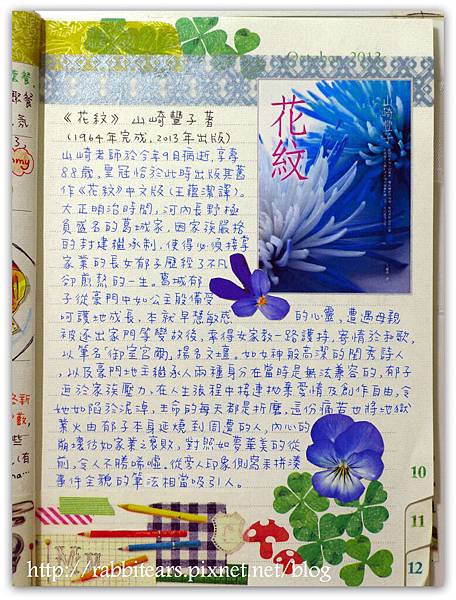 October 2013
《花紋》 山崎豐子著
(1964年完成,2013年出版)
山崎老師於今年9月病逝,享壽
88歲,皇冠恰於此時出版其舊
作《花紋》中文版(王蘊潔譯)。
大正明治時間,河內長野極
負盛名的葛城家,因家族嚴謹
的封建繼承制,使得必須接掌
家業的長女郁子歷經了不凡
卻煎熬的一生。葛城郁
子從豪門中如公主般備受
呵護地成長,本就早慧敏感的心靈,遭遇母親
被逐出家門等變故後,幸得女家教一路護持,寄情於和歌,
以筆名「御室宮卿」揚名文壇,如女神般高潔的閨秀詩人
,以及豪門地主繼承人兩種身分在當時是無法兼容的,郁子
迫於家族壓力,在人生旅程中接連拋棄愛情及創作自由,令
她如陷於泥淖,生命的每天都是折磨。這份痛苦也將地獄
業火由郁子本身延燒到周遭的人,內心的
崩壞彷如家業之衰敗,對照如夢華美的從
前,令人不勝唏噓。從旁人印象側寫來拼湊
事件全貌的筆法相當吸引人。
花紋
山崎豐子
10
11
12
http://rabbitears.pixnet.net/blog